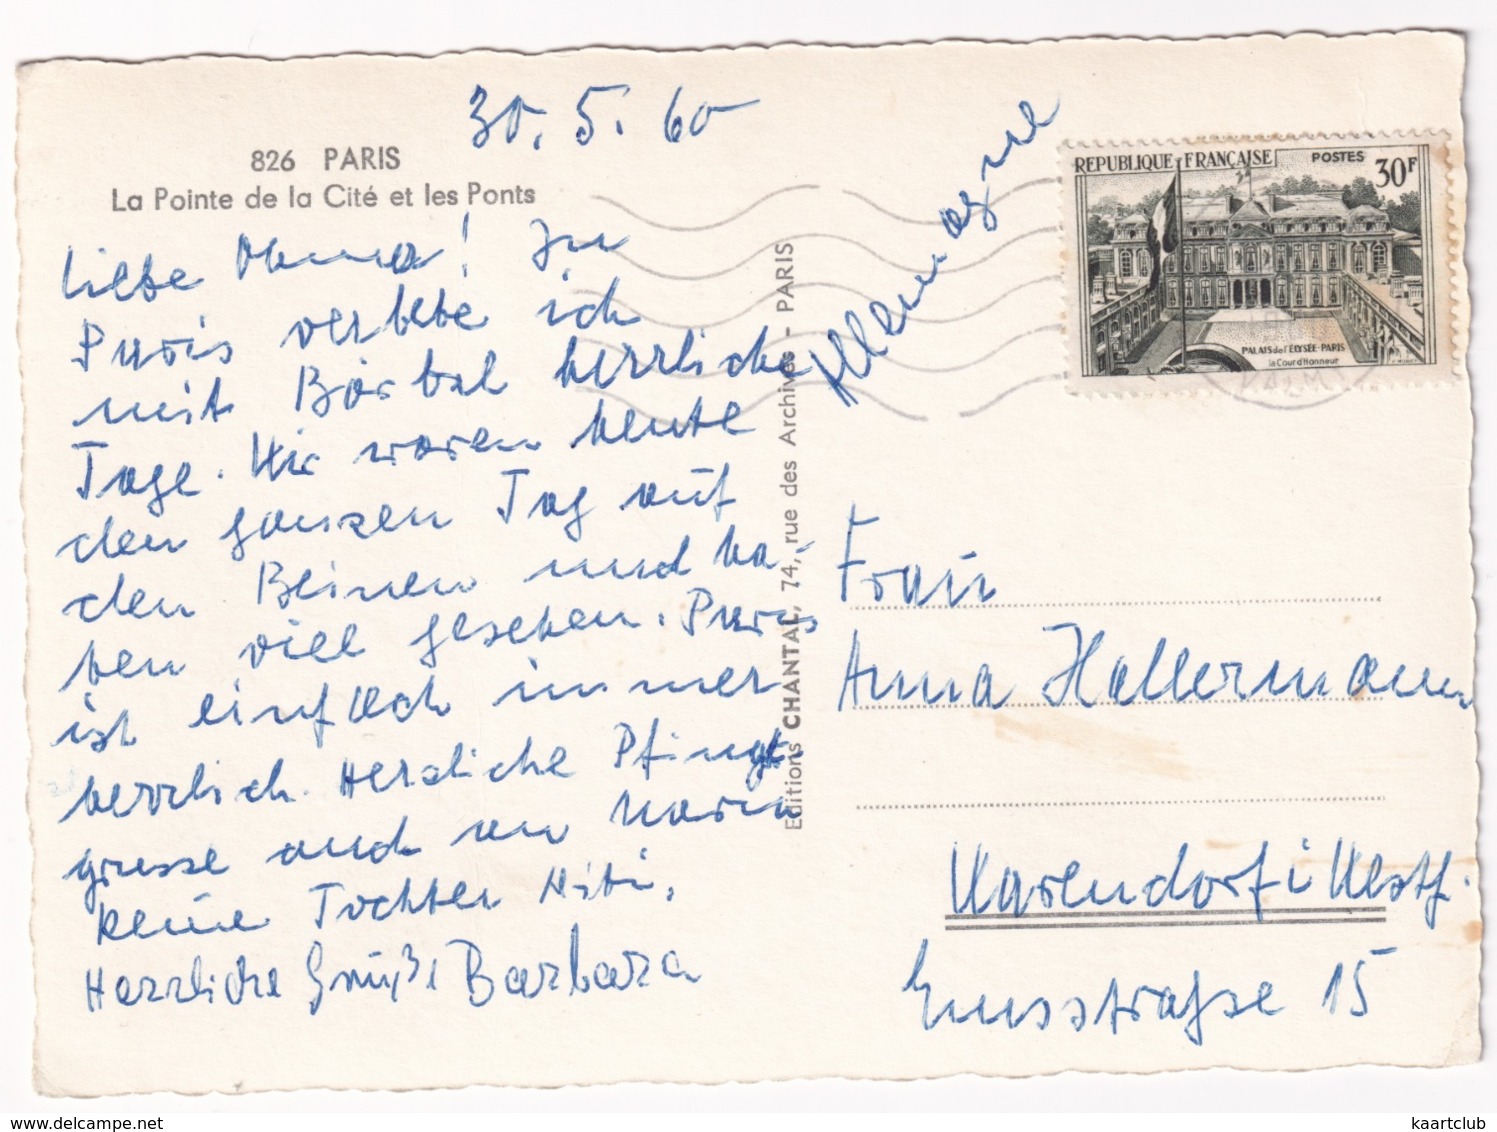 30. 5. 60
826 PARIS
La Pointe de la Cité et les Ponts
Liebe Mama! In
Paris verlebe ich
mit Bärbel herrliche
Tage. Wir waren heute
den ganzen Tag auf
den Beinen und ha-
ben viel gesehen. Paris
ist einfach immer
herrlich. Herzliche Pfingst-
grüsse auch an
Deine Tochter
Herzliche Grüße Barbara
Editions CHANTAL, 74, rue des Archives - PARIS
Allemagne
REPUBLIQUE FRANÇAISE POSTES 30F
PALAIS de l'ELYSÉE-PARIS
la Cour d'Honneur
Frau
Anna Hallermann
Warendorf i Westf.
Emsstraße 15
delcampe.net
kaartclub